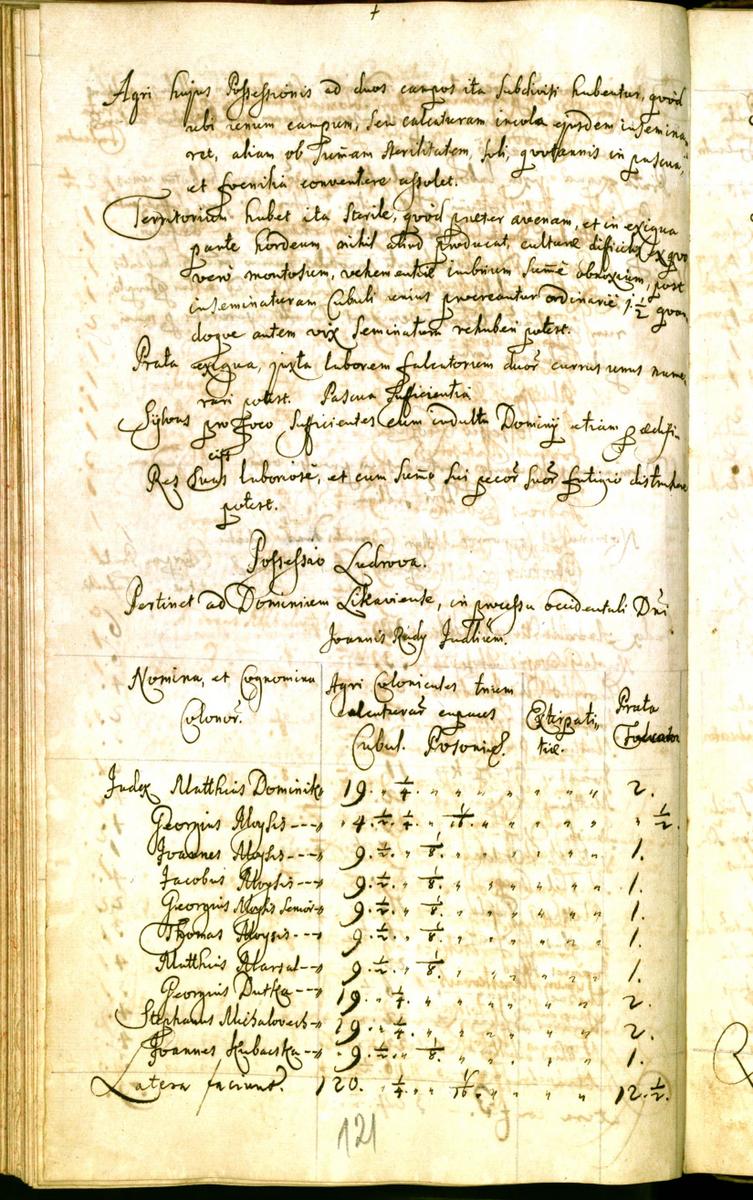 +
Agri hujus Possessionis ad duos campos ita subdivisi habentur, quòd
ubi unum campum, seu calcaturam incolæ ejusdem insemina
ret, aliam ob sum̃am sterilitatem, soli, quotannis in pascua,
et fœnilia convertere assolet.
Territorium habet ita sterile, quòd præter avenam, et in exigua
parte hordeum nihil aliud producat, culturæ difficilis ex quo
verò montosum, vehementiæ imbrium sum̃è obnoxium, post
inseminaturam Cubuli unius procreantur ordinariè 1 1/2 quan
doque autem vix seminatura rehaberi potest.
Prata exigua, juxta laborem falcatorum duor̃ currus unus nume
rari potest. Pascua sufficientia
Sylvas pro foco sufficientes cum indultu Dominij etiam p ædifi
cijs
Res suas laboriosè, et cum sum̃o sui pecor̃ suor̃ fatigio distrahere
potest.
Possessio Ludrova.
Pertinet ad Dominium Likaviense, in processu occidentali Dñi
Joannis Rády Judlium.
Nomina, et Cognomina
Colonor̃.
Agri Colonicales trium
calcaturar̃ capaces
Cubul. Posonien̄.
Extirpati
tiæ.
Prata
Falcator
Judex Matthias Dominik 19. " 1/4. " " " " " " " 2.
Georgius Aloysis --- " 4. 1/2. 1/4. " 1/16. " " " " " " 1/2.
Joannes Aloysis --- 9. 1/2. " 1/8. " " " " " " 1.
Jacobus Aloysis --- 9. 1/2. " 1/8. " " " " " " 1.
Georgius Aloysis Senior 9. 1/2. " 1/8. " " " " " " 1.
Thomas Aloysis --- 9. 1/2. " 1/8. " " " " " " 1.
Matthias --- 9. 1/2. " 1/8. " " " " " " 1.
Georgius Dutka --- 19. " 1/4. " " " " " " " 2.
Stephanus Michalovech 19. " 1/4. " " " " " " " 2.
Joannes Hubacska --- 9. 1/2. " 1/8. " " " " " " 1.
Latera faciunt. 120. " 1/4. " " 1/16. " " " " " 12. 1/2.
121